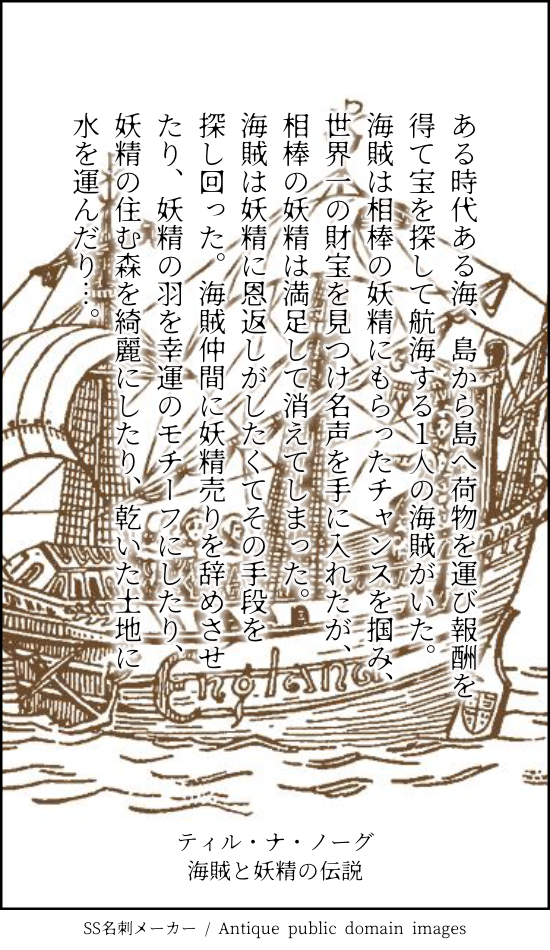 ある時代ある海、島から島へ荷物を運び報酬を
得て宝を探して航海する1人の海賊がいた。
海賊は相棒の妖精にもらったチャンスを掴み、
世界一の財宝を見つけ名声を手に入れたが、
相棒の妖精は満足して消えてしまった。
海賊は妖精に恩返しがしたくてその手段を
探し回った。海賊仲間に妖精売りを辞めさせ
たり、妖精の羽を幸運のモチーフにしたり、
妖精の住む森を綺麗にしたり、乾いた土地に
水を運んだり…。
England
ティル・ナ・ノーグ
海賊と妖精の伝説
SS名刺メーカー / Antique public domain images